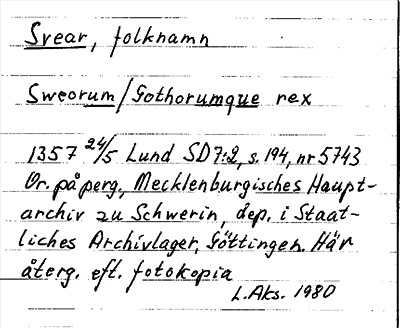 Svear, folknamn
Sweorum/Gothorumque rex
1357 24/5 Lund SD7:2, s. 194, nr 5743
Or. på perg., Mecklenburgisches Haupt-
archiv zu Schwerin, dep. i Staat-
liches Archivlager, Göttingen. Här
återg. eft. fotokopia
L. Aks. 1980